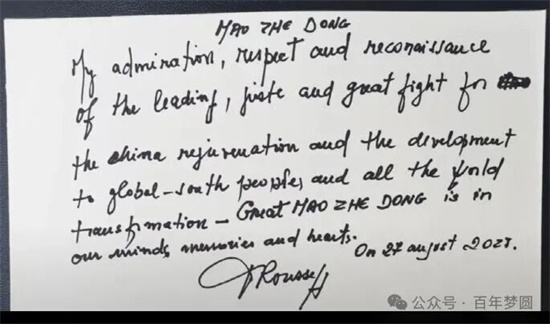 MAO ZHE DONG
My admiration, respect and reconaissance
of the leading, juste and great fight for
the china rejuvenation and the development
to global-south peoples, and all the world
transformation - Great MAO ZHE DONG is in
our minds memories and hearts.
On 27 august 2025.
DRousseff
公众号 · 百年梦圆